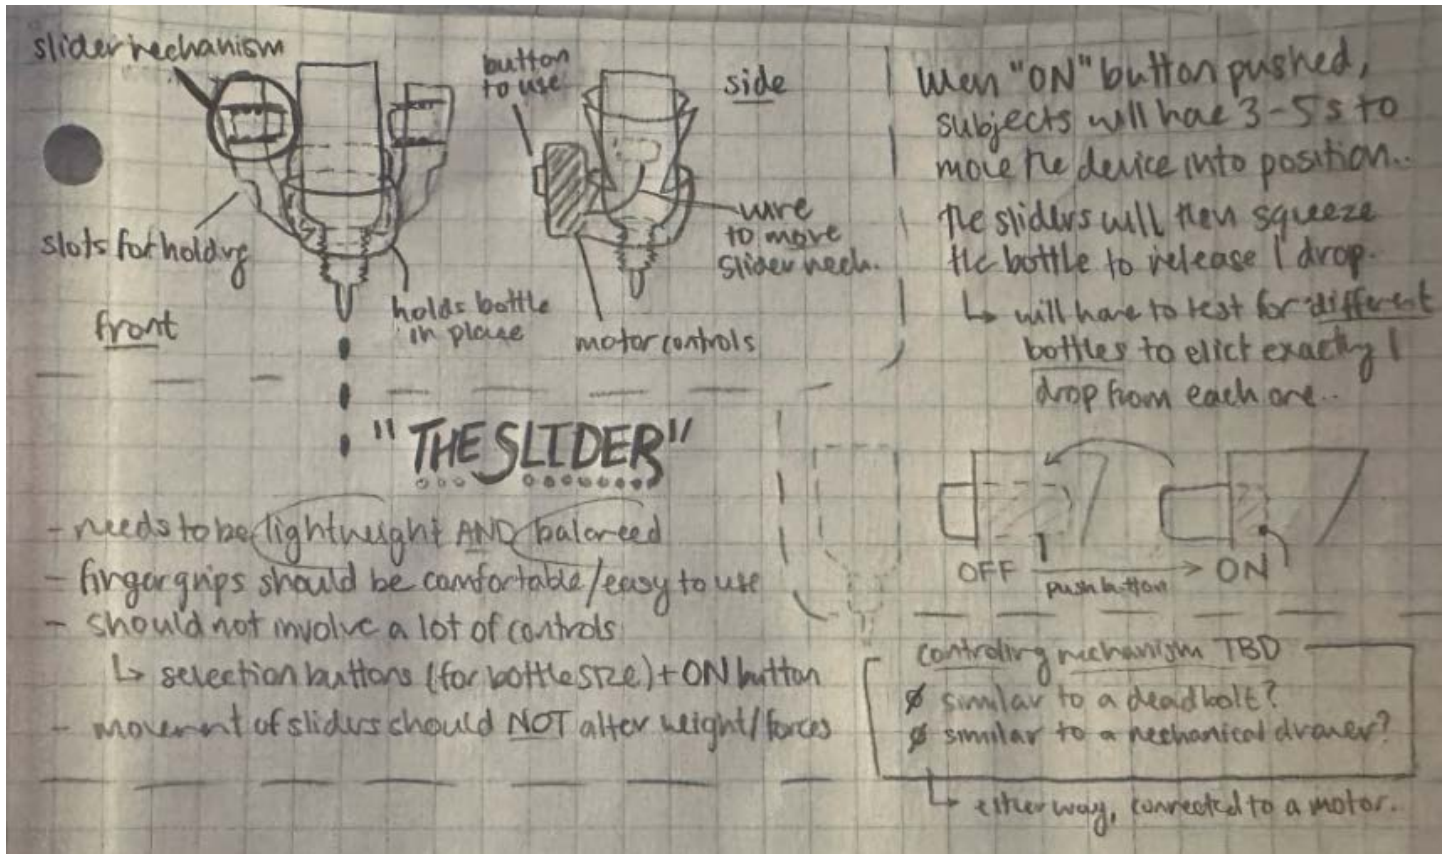 slider mechanism
slots for holding
front
holds bottle
in place
button
to use
side
wire
to move
slider mech.
motor controls
When "ON" button pushed,
subjects will have 3-5s to
move the device into position..
the sliders will then squeeze
the bottle to release 1 drop.
↳ will have to test for different
bottles to elict exactly 1
drop from each one..
"THE SLIDER"
- needs to be lightweight AND balanced
- finger grips should be comfortable/easy to use
- should not involve a lot of controls
↳ selection buttons (for bottle size) + ON button
- movement of sliders should NOT alter weight/forces
OFF
push button
ON
controling mechanism TBD
ø similar to a deadbolt?
ø similar to a mechanical drawer?
↳ either way, connected to a motor.